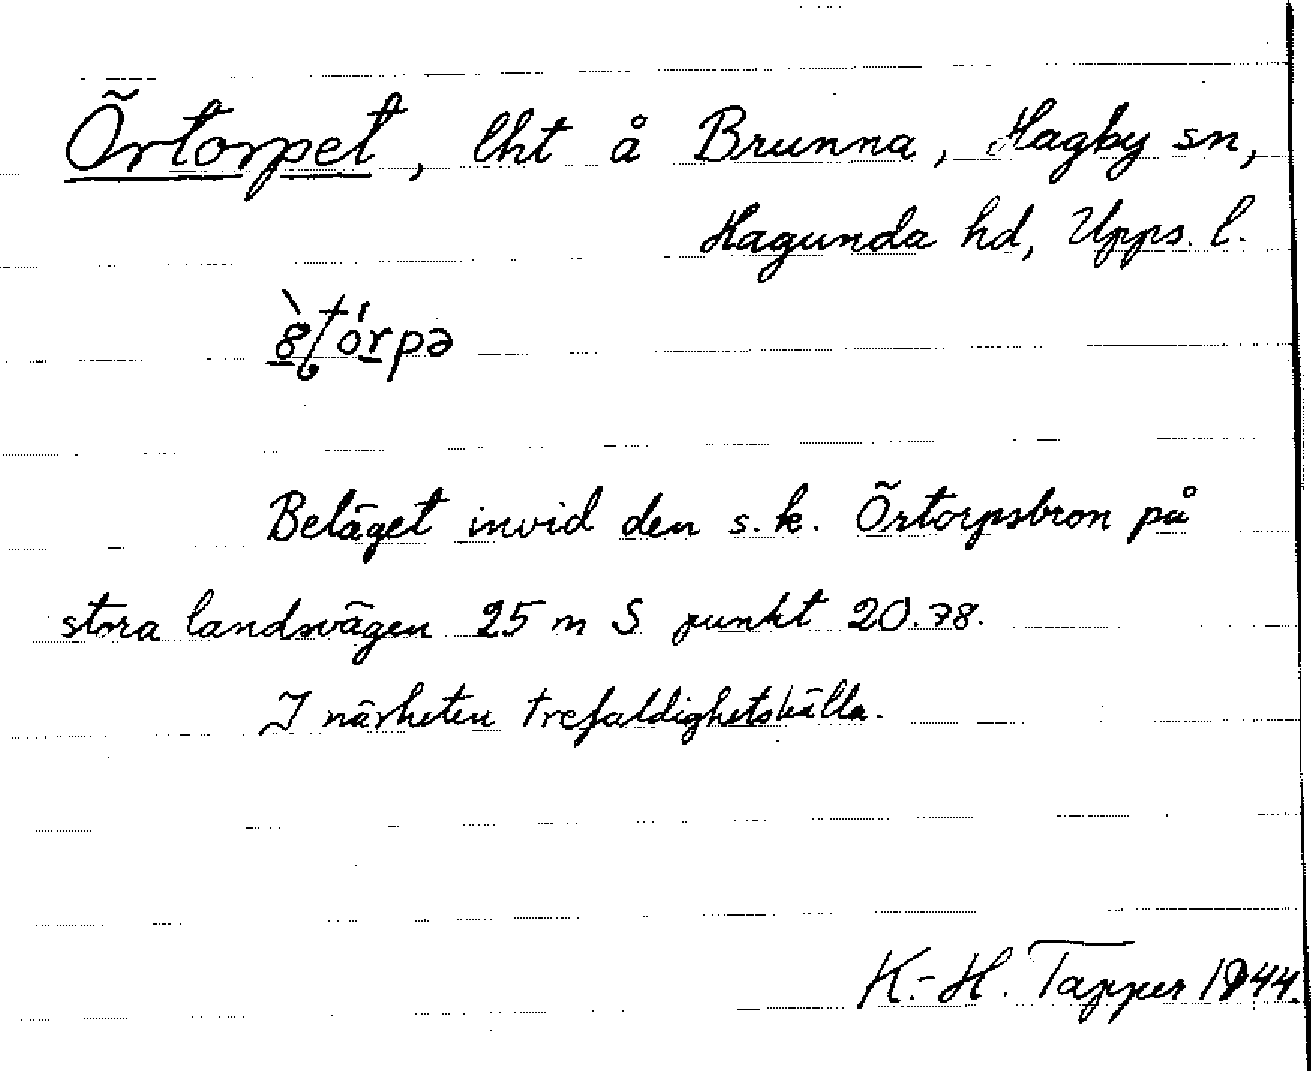 Örtorpet, lht å Brunna, Hagby sn,
Hagunda hd, Upps. l.
Beläget invid den s.k. Örtorpsbron på
stora landsvägen 25 m S punkt 20.78.
I närheten trefaldighetskälla.
K.-H. Tapper 1944.